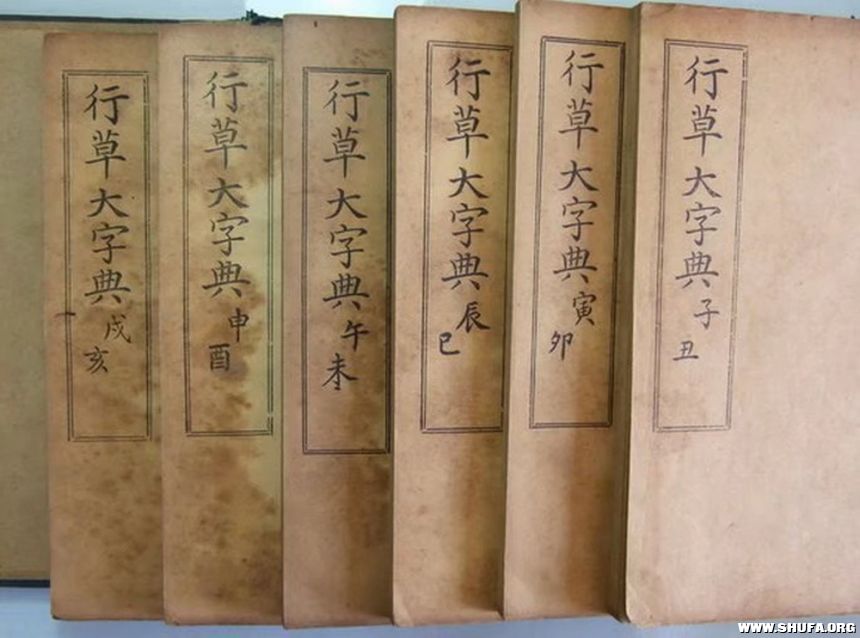 行草大字典 子丑
行草大字典 寅卯
行草大字典 辰巳
行草大字典 午未
行草大字典 申酉
行草大字典 戌亥
WWW.SHUFA.ORG